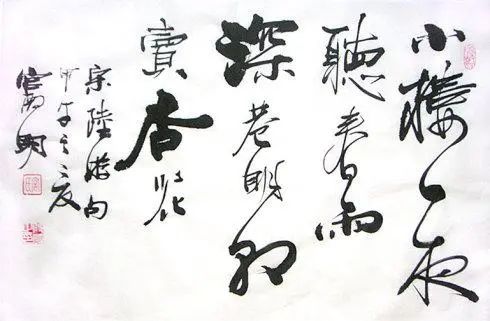 小樓一夜
聽春雨
深巷明朝
賣杏花
宋陸游句
甲午之夏